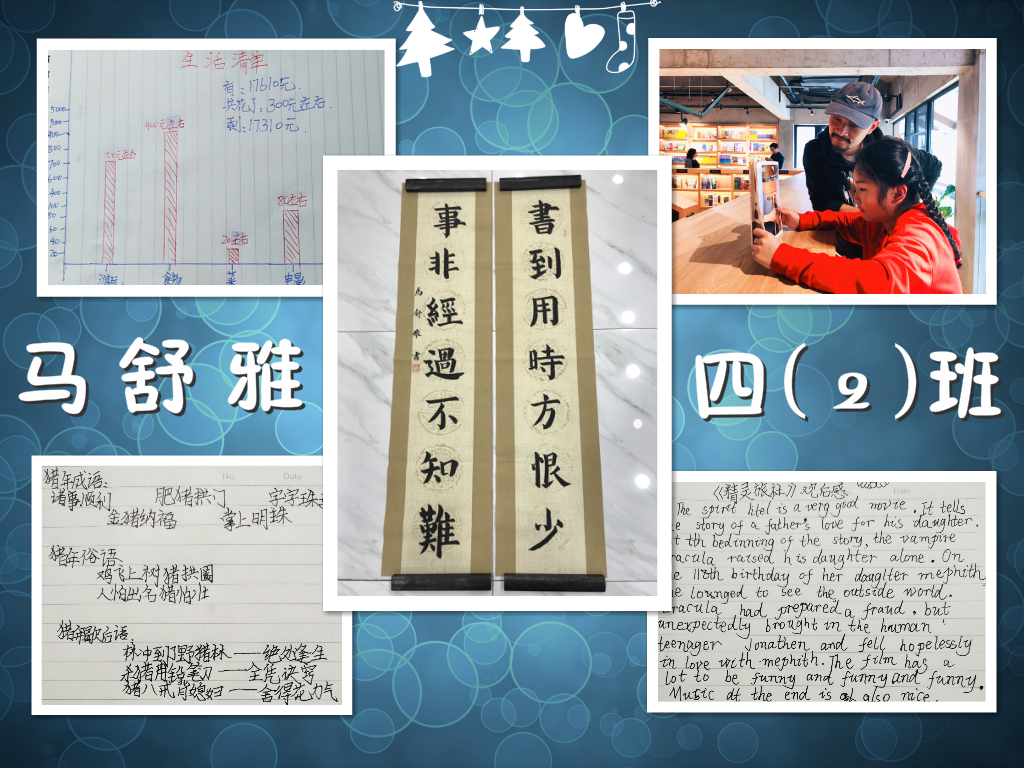 生活清单
有:17610元.
共花了:300元左右.
剩:17310元.
100元左右
400元左右
20左右
80左右
电影
書到用時方恨少
事非經過不知難
馬舒雅書
马舒雅
四(2)班
No.
Date
猪年成语:
诸事顺利 肥猪拱门 字字珠
金猪纳福 掌上明珠
猪年俗语、
鸡飞上树猪拱圈
人怕出名猪怕壮
猪年歇后语、
林冲到了野猪林——绝处逢生
杀猪用铅笔刀——全凭诀窍
猪八戒背媳妇——舍得花力气
《精灵旅社》观后感
The spirit htel is a very good movie. It tells
e story of a father's love for his daughter.
t tth beginning of the story, the vampire
racula raised his daughter alone. On
e 118th birthday of her dauglter mephith,
e lounged to see the outside world.
Dracula had prepared a fraud, but
unexpectedly brought in the human
teenager Jonathen and fell hopelessly
in love with mephith. The film has a
lot to be funny and funny and funny.
Music at the end is also nice.